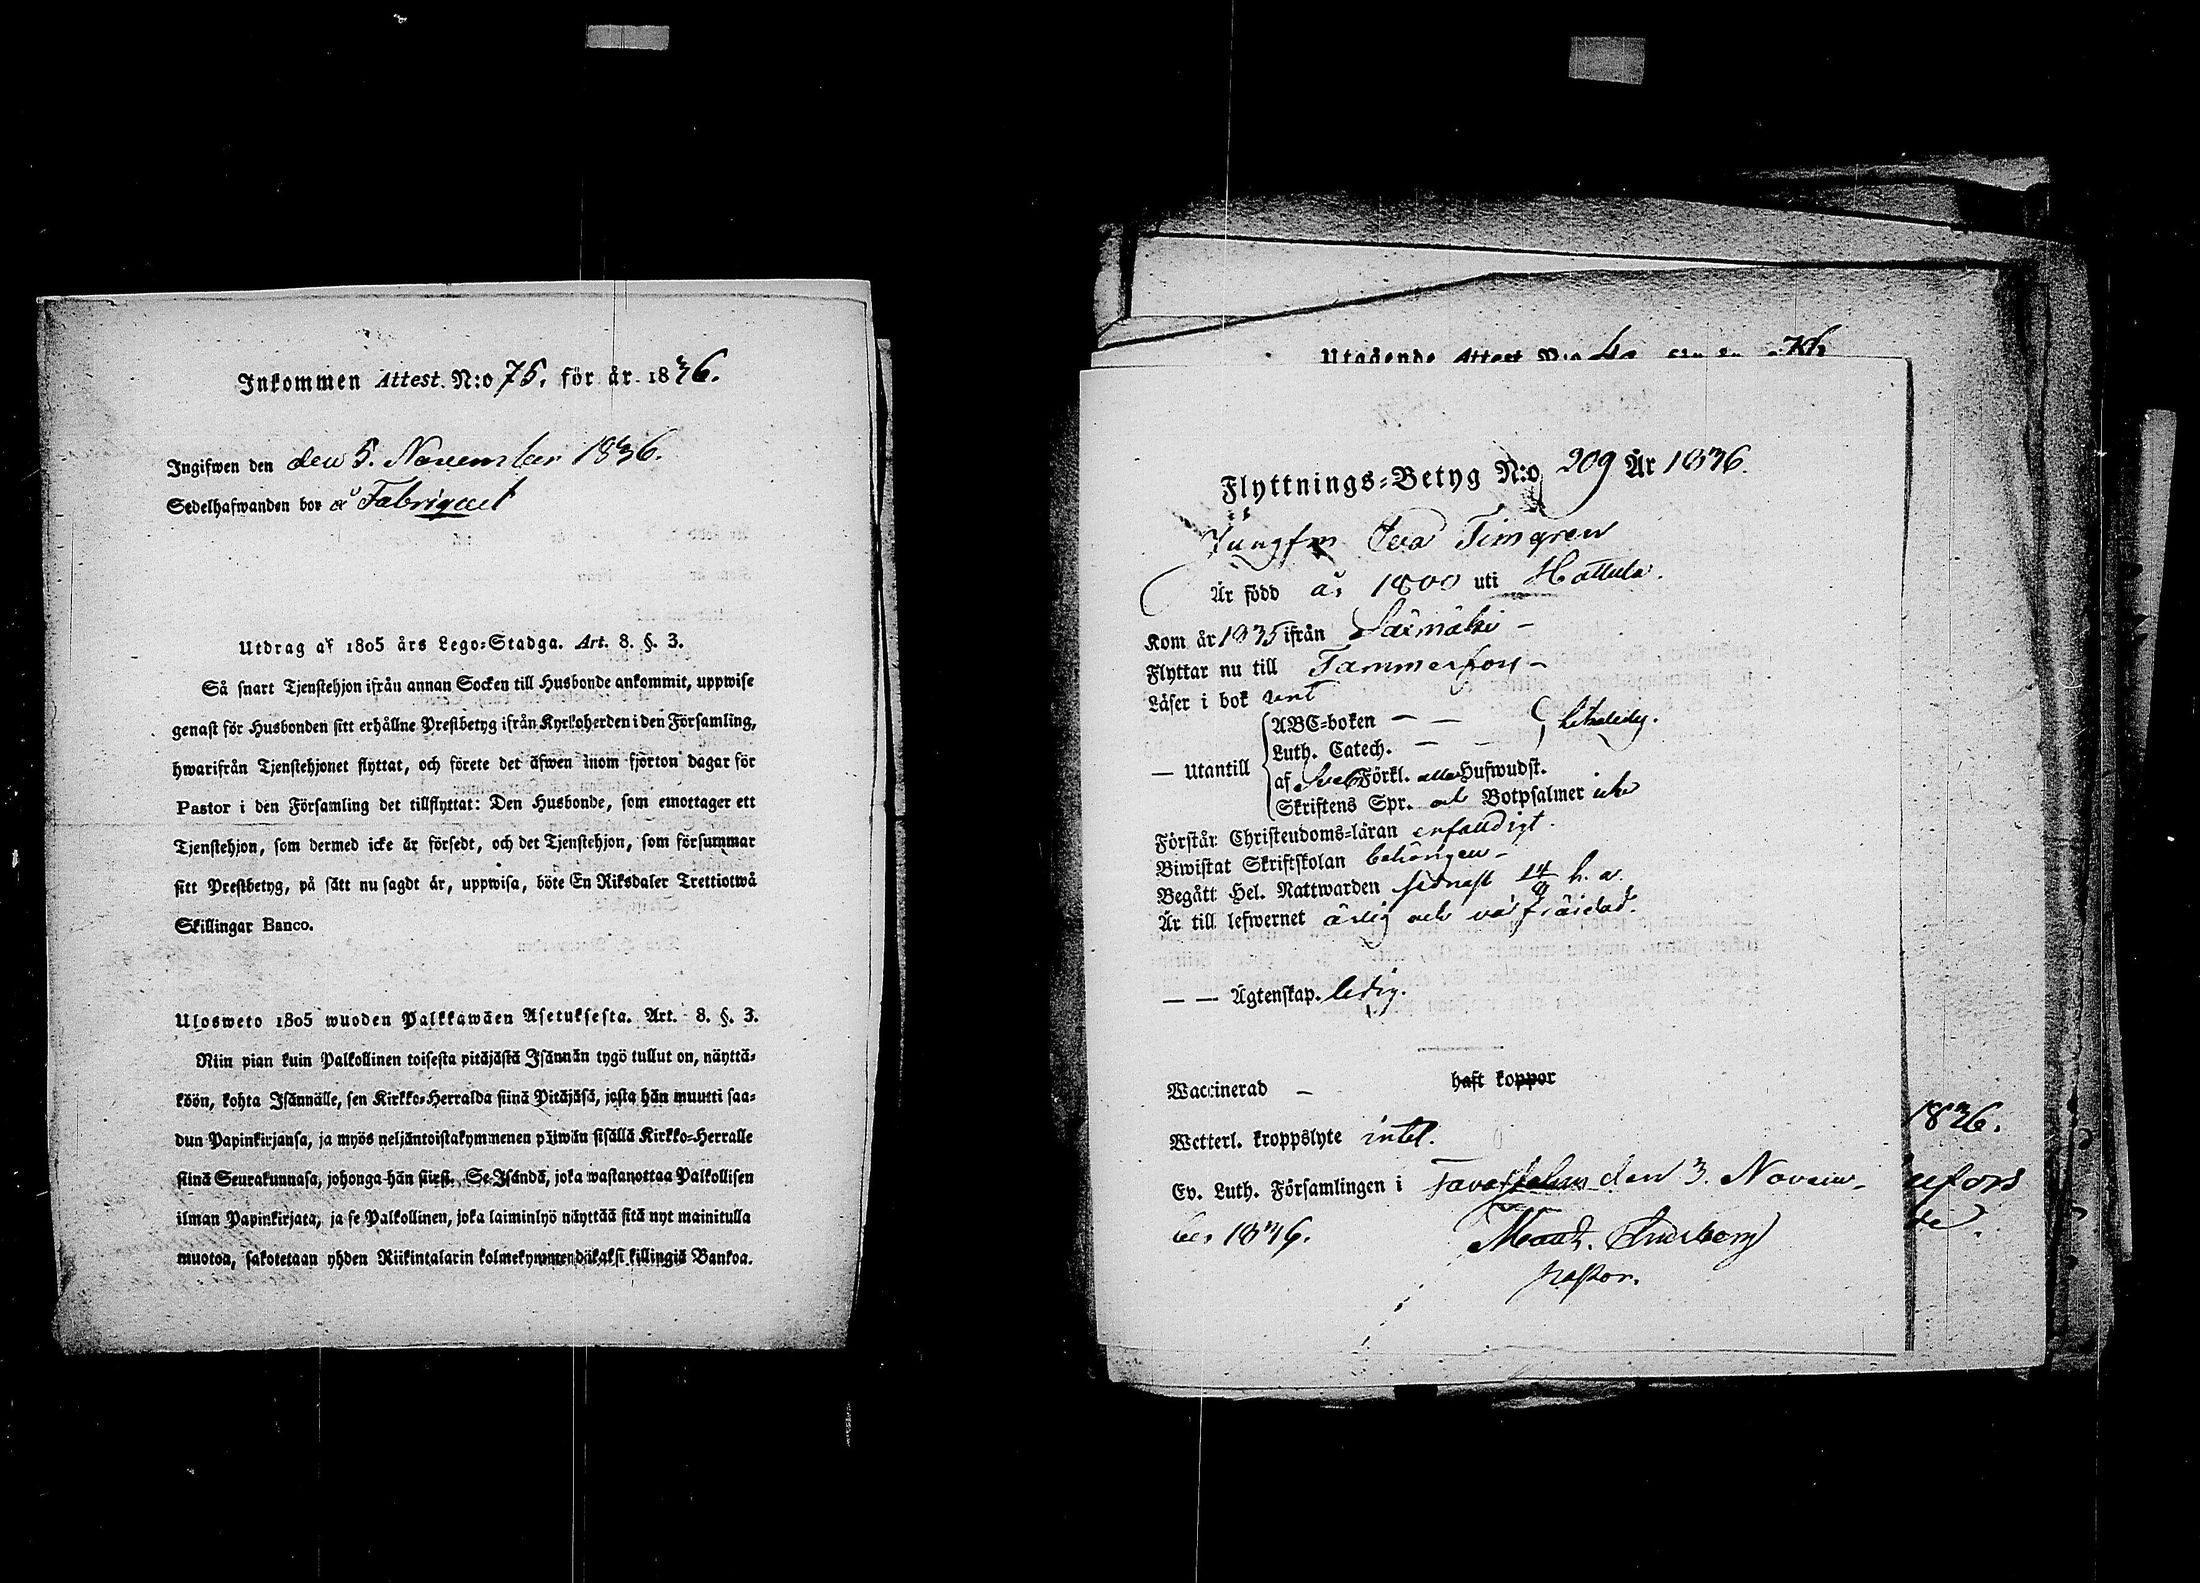 Inkommen Attest. N:o 75. för år 1836.
Ingifwen den den 5. November 1836.
Sedelhafwanden bor å Fabriquet
Utdrag af 1805 års Lego-Stadga. Art. 8. §. 3.
Så snart Tjenstehjon ifrån annan Socken till Husbonde ankommit, uppwise
genast för Husbonden sitt erhållne Prestbetyg ifrån Kyrkoherden i den Församling,
hwarifrån Tjenstehjonet flyttat, och förete det äfwen inom fjorton dagar för
Pastor i den Församling det tillflyttat: Den Husbonde, som emottager ett
Tjenstehjon, som dermed icke är försedt, och det Tjenstehjon, som försummar
sitt Prestbetyg, på sätt nu sagdt är, uppwisa, böte En Riksdaler Trettiotwå
Skillingar Banco.
Ulosweto 1805 wuoden Palkkawäen Asetuksesta. Art. 8. §. 3.
Niin pian kuin Palkollinen toisesta pitäjästä Isännän tygö tullut on, näyttä-
köön, kohta Isännälle, sen Kirkko-Herralda siinä Pitäjäsä, josta hän muutti saa-
dun Papinkirjansa, ja myös neljäntoistakymmenen päiwän sisällä Kirkko-Herralle
siinä Seurakunnasa, johonga hän siirsi. Se Isändä, joka wastanottaa Palkollisen
ilman Papinkirjata, ja se Palkollinen, joka laiminlyö näyttää sitä nyt mainitulla
muotoa, sakotetaan yhden Riikintalarin kolmekymmendäkaksi killingiä Bankoa.
Utgående Attest N:o
Flyttnings-Betyg N:o 209 År 1836.
Jungfru Eva Timgren
Är född år 1800 uti Hattula.
Kom år 1835 ifrån Säxmäki -
Flyttar nu till Tammerfors -
Läser i bok rent
ABC-boken — —
Luth. Catech. — —
— Utantill
af Förkl. alla Hufwudst.
Skriftens Spr. och Botpsalmer icke
Förstår Christendoms-läran enfaldigt.
Biwistat Skriftskolan behörigen -
Begått Hel. Nattwarden sednast h. a.
Är till lefwernet ärlig och väl fräjdad.
— — Ägtenskap. ledig.
Waccinerad - haft koppor
Wetterl. kroppslyte intet.
Ev. Luth. Församlingen i Tavastehus den 3. Novem-
ber 1836.
pastor.
1836.